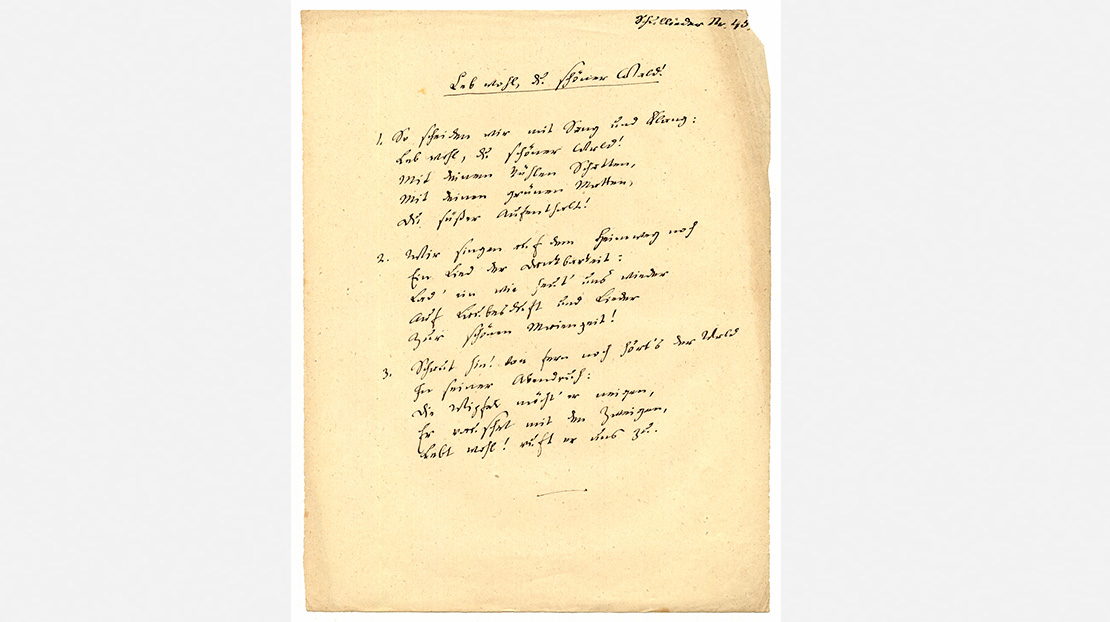 Schullieder Nr. 45.
Leb wohl, du schöner Wald!
1. So scheiden wir mit Sang und Klang:
Leb wohl, du schöner Wald!
Mit deinen kühlen Schatten,
Mit deinen grünen Matten,
Du süßer Aufenthalt!
2. Wir singen auf dem Heimweg noch
Ein Lied der Dankbarkeit:
Lad' ein wie heut' uns wieder
Auf Laubesduft und Lieder
Zur schönen Maienzeit!
3. Schaut hin! von fern noch hört's der Wald
In seiner Abendruh:
Die Wipfel möcht' er neigen,
Er rauschet mit den Zweigen,
Lebt wohl! ruft er uns zu.